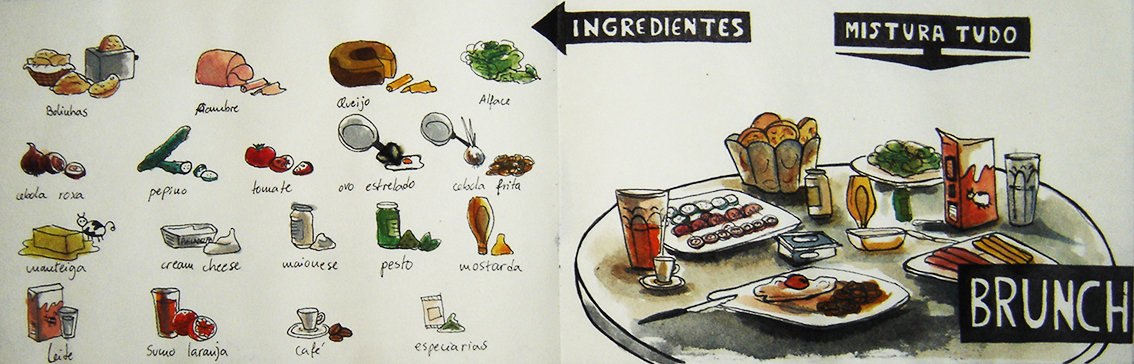 INGREDIENTES
MISTURA TUDO
Bolinhas
Fiambre
Queijo
Alface
cebola roxa
pepino
tomate
ovo estrelado
cebola frita
manteiga
cream cheese
maionese
pesto
mostarda
Leite
Sumo laranja
Café
especiarias
BRUNCH